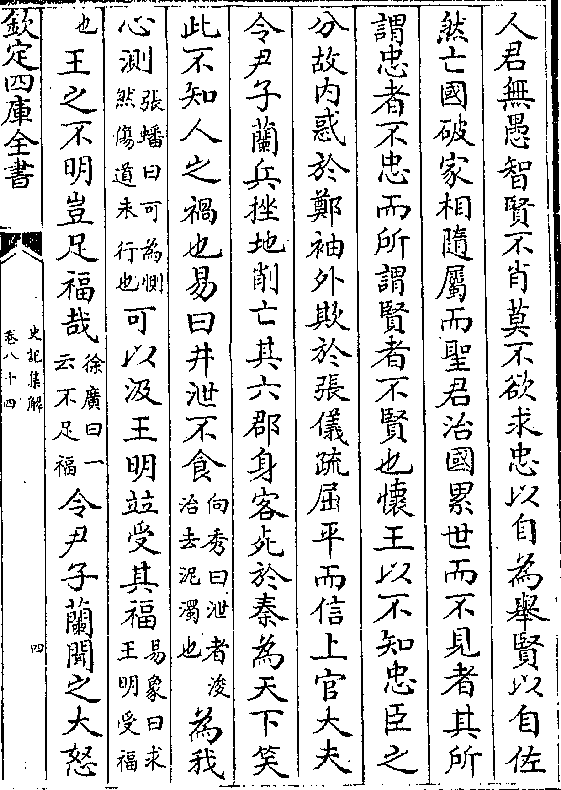 人君無愚智賢不肖莫不欲求忠以自為舉賢以自佐
然亡國破家相隨屬而聖君治國累世而不見者其所
謂忠者不忠而所謂賢者不賢也懷王以不知忠臣之
分故内惑於鄭袖外欺於張儀疏屈平而信上官大夫
令尹子蘭兵挫地削亡其六郡身客死於秦為天下笑
此不知人之禍也易曰井泄不食向秀曰泄者浚治去泥濁也為我
心測張璠曰可為惻然傷道未行也可以汲王明竝受其福易象曰求王明受福
也王之不明豈足福哉徐廣曰一云不足福令尹子蘭聞之大怒
欽定四庫全書
史記集解
卷八十四
四